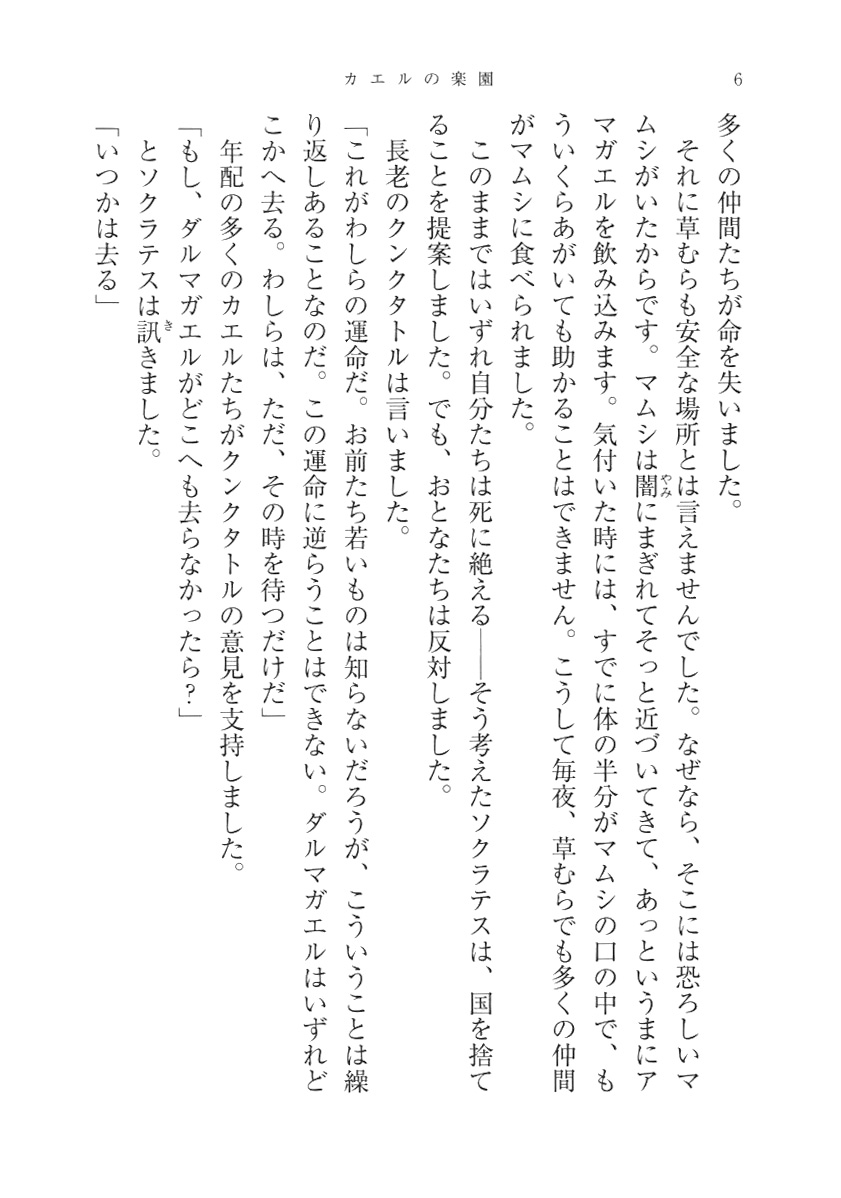 カエルの楽園
6
多くの仲間たちが命を失いました。
　それに草むらも安全な場所とは言えませんでした。なぜなら、そこには恐ろしいマ
ムシがいたからです。マムシは闇にまぎれてそっと近づいてきて、あっというまにア
やみ
マガエルを飲み込みます。気付いた時には、すでに体の半分がマムシの口の中で、も
ういくらあがいても助かることはできません。こうして毎夜、草むらでも多くの仲間
がマムシに食べられました。
　このままではいずれ自分たちは死に絶える――そう考えたソクラテスは、国を捨て
ることを提案しました。でも、おとなたちは反対しました。
　長老のクンクタトルは言いました。
「これがわしらの運命だ。お前たち若いものは知らないだろうが、こういうことは繰
り返しあることなのだ。この運命に逆らうことはできない。ダルマガエルはいずれど
こかへ去る。わしらは、ただ、その時を待つだけだ」
　年配の多くのカエルたちがクンクタトルの意見を支持しました。
「もし、ダルマガエルがどこへも去らなかったら？」
　とソクラテスは訊きました。
き
「いつかは去る」